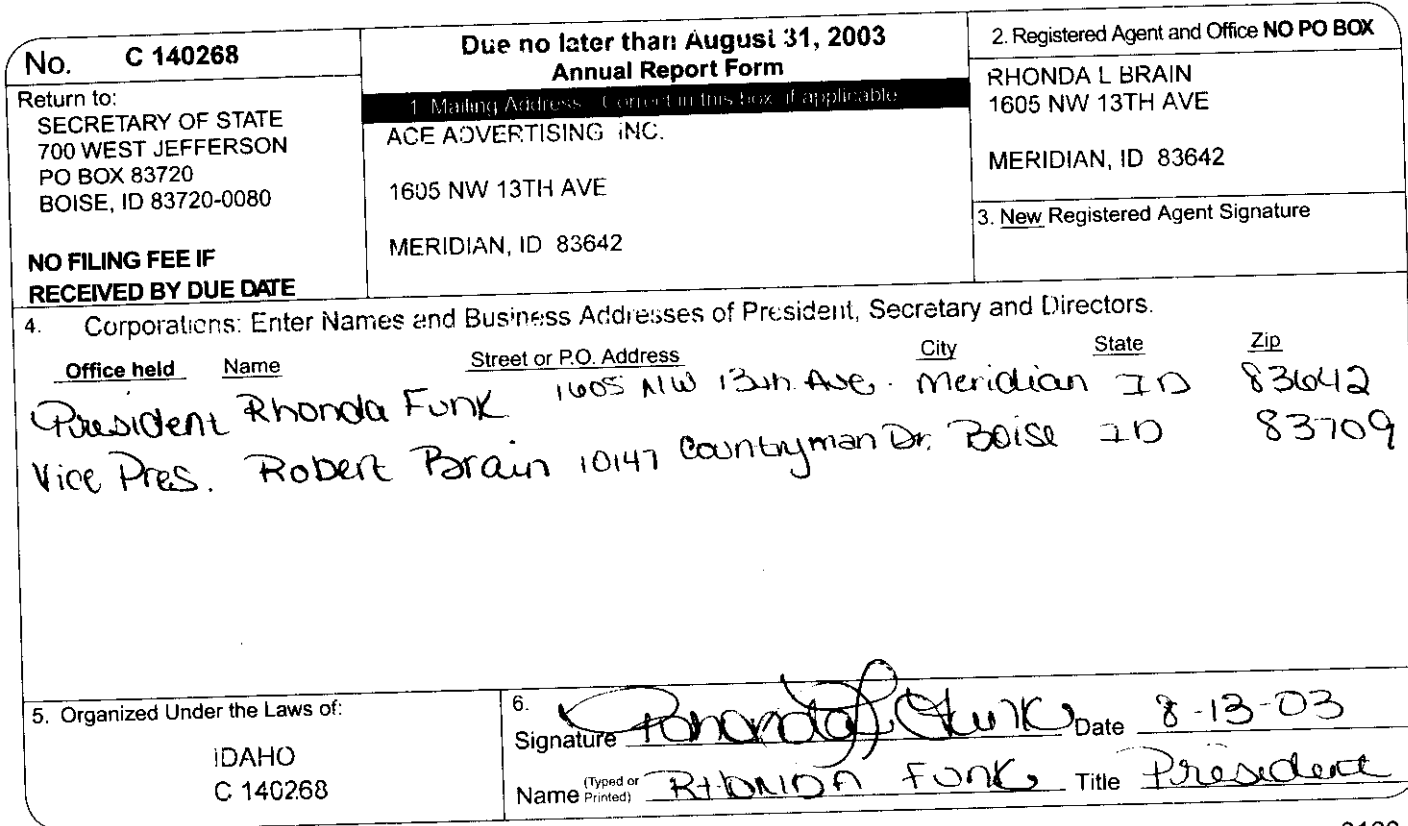 No. C 140268
Return to:
SECRETARY OF STATE
700 WEST JEFFERSON
PO BOX 83720
BOISE, ID 83720-0080
NO FILING FEE IF
RECEIVED BY DUE DATE
Due no later than August 31, 2003
Annual Report Form
1. Mailing Address: Correct in this box, if applicable
ACE ADVERTISING INC.
1605 NW 13TH AVE
MERIDIAN, ID 83642
2. Registered Agent and Office NO PO BOX
RHONDA L BRAIN
1605 NW 13TH AVE
MERIDIAN, ID 83642
3. New Registered Agent Signature
4. Corporations: Enter Names and Business Addresses of President, Secretary and Directors.
Office held Name Street or P.O. Address City State Zip
President Rhonda Funk 1605 NW 13th Ave. Meridian ID 83642
Vice Pres. Robert Brain 10147 Countryman Dr. Boise ID 83709
5. Organized Under the Laws of:
IDAHO
C 140268
6.
Signature Rhonda L Funk Date 8-13-03
Name (Typed or Printed) RHONDA FUNK Title President